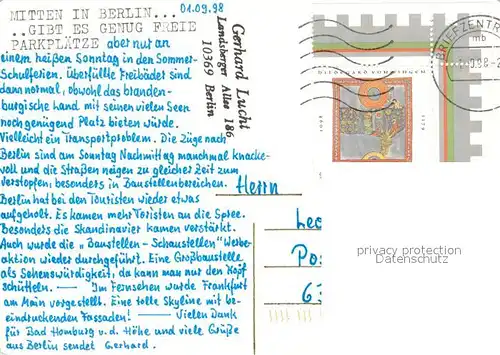 01.09.98
MITTEN IN BERLIN...
..GIBT ES GENUG FREIE
PARKPLÄTZE aber nur an
einem heißen Sonntag in den Sommer-
Schulferien. Überfüllte Freibäder sind
dann normal, obwohl das branden-
burgische Land mit seinen vielen Seen
noch genügend Platz bieten würde.
Vielleicht ein Transportproblem. Die Züge nach
Berlin sind am Sonntag Nachmittag manchmal knacke-
voll und die Straßen neigen zu gleicher Zeit zum
verstopfen, besonders in Baustellenbereichen.
Berlin hat bei den Touristen wieder etwas
aufgeholt. Es kamen mehr Toristen an die Spree.
Besonders die Skandinavier kamen verstärkt.
Auch wurde die "Baustellen-Schaustellen" Werbe-
aktion wieder durchgeführt. Eine Großbaustelle
als Sehenswürdigkeit, da kann man nur den Kopf
schütteln. — Im Fernsehen wurde Frankfurt
am Main vorgestellt. Eine tolle Skyline mit be-
eindruckenden Fassaden! — Vielen Dank
für Bad Homburg v.d. Höhe und viele Grüße
aus Berlin sendet Gerhard.
Gerhard Lucht
Landsberger Allee 186
10369 Berlin
BRIEFZENTR
mb
HILDEGARD VON BINGEN
1098
1179
Herrn
Leo
Po
6
privacy protection
Datenschutz